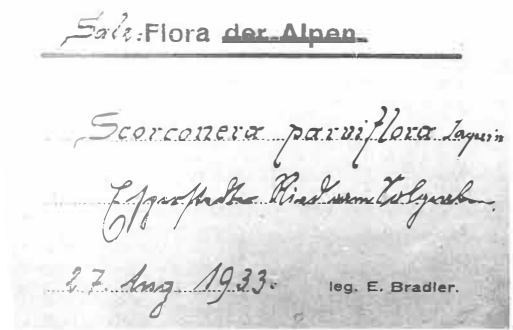 Salz: Flora der Alpen.
Scorconera parviflora Jaquin
Esperstedter Ried am Solgraben.
27. Aug 1933. leg. E. Bradler.